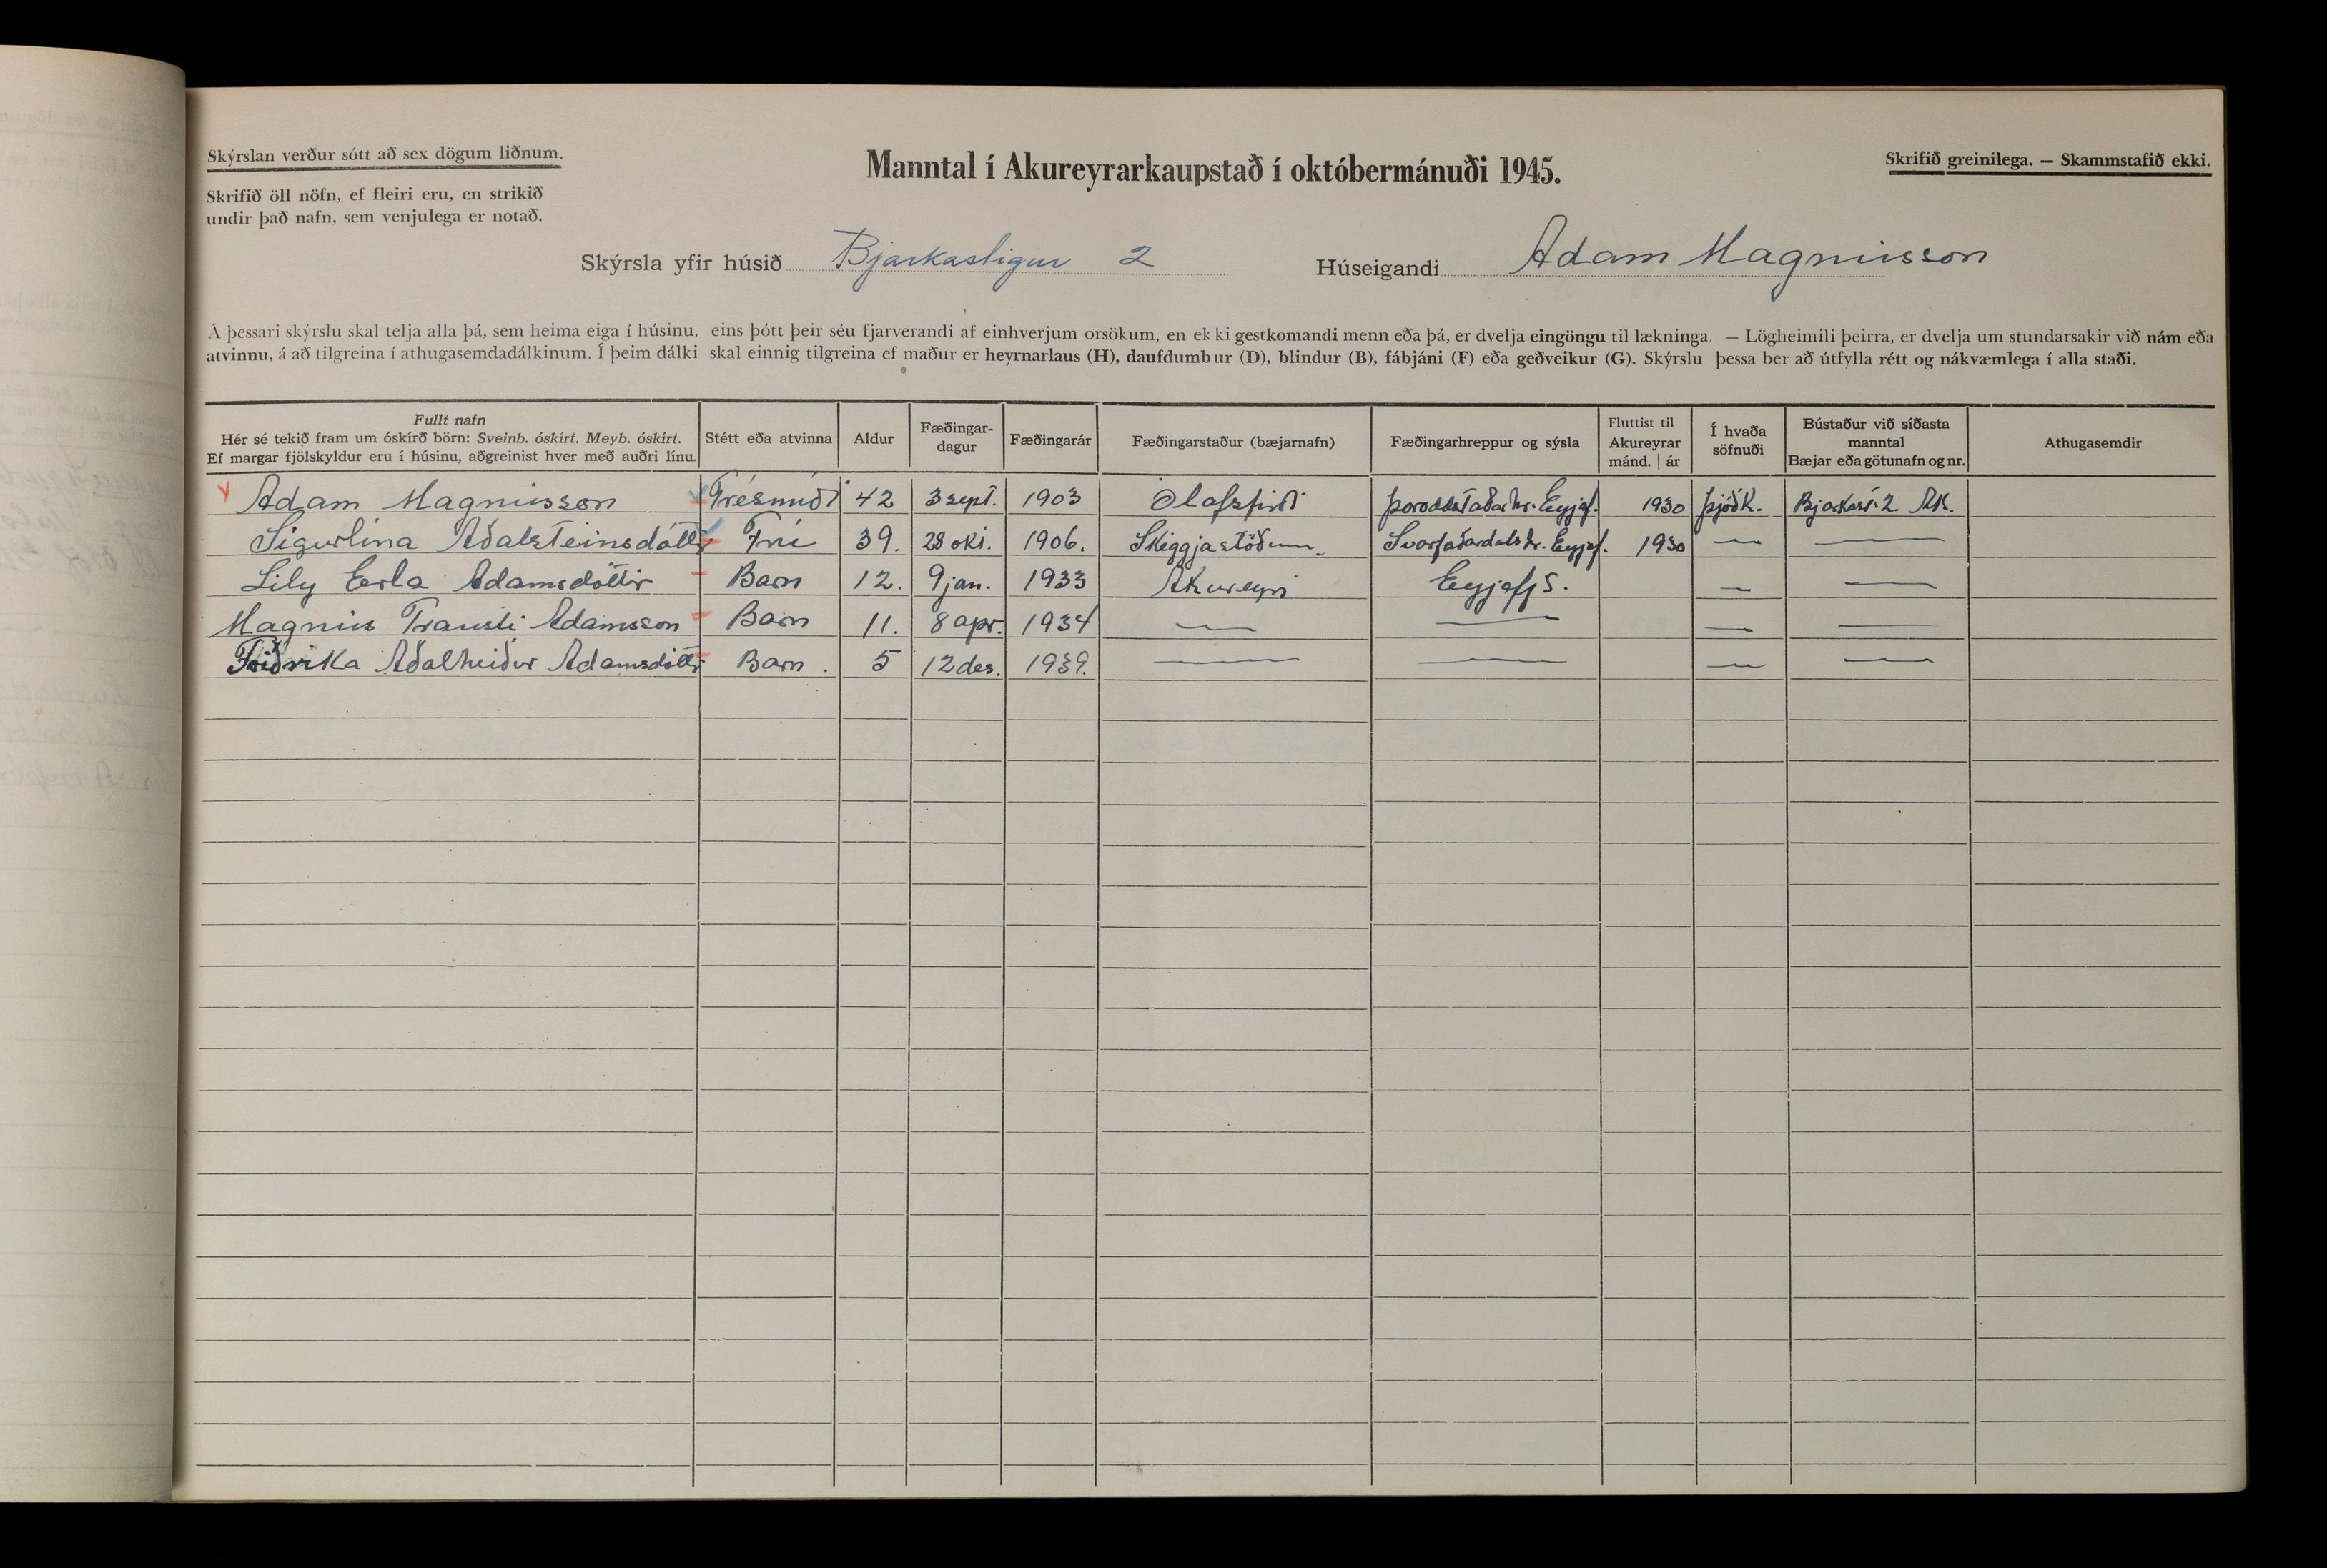 Skýrslan verður sótt að sex dögum liðnum.
Skrifið öll nöfn, ef fleiri eru, en strikið
undir það nafn, sem venjulega er notað.
Manntal í Akureyrarkaupstað í októbermánuði 1945.
Skrifið greinilega. — Skammstafið ekki.
Skýrsla yfir húsið Bjarkastigur 2 Húseigandi Adam Magnússon
Á þessari skýrslu skal telja alla þá, sem heima eiga í húsinu, eins þótt þeir séu fjarverandi af einhverjum orsökum, en ekki gestkomandi menn eða þá, er dvelja eingöngu til lækninga. — Lögheimili þeirra, er dvelja um stundarsakir við nám eða
atvinnu, á að tilgreina í athugasemdadálkinum. Í þeim dálki skal einnig tilgreina ef maður er heyrnarlaus (H), daufdumbur (D), blindur (B), fábjáni (F) eða geðveikur (G). Skýrslu þessa ber að útfylla rétt og nákvæmlega í alla staði.
Fullt nafn
Hér sé tekið fram um óskírð börn: Sveinb. óskírt. Meyb. óskírt.
Ef margar fjölskyldur eru í húsinu, aðgreinist hver með auðri línu.
Stétt eða atvinna
Aldur
Fæðingar-
dagur
Fæðingarár
Fæðingarstaður (bæjarnafn)
Fæðingarhreppur og sýsla
Fluttist til
Akureyrar
mánd. | ár
Í hvaða
söfnuði
Bústaður við síðasta
manntal
Bæjar eða götunafn og nr.
Athugasemdir
Adam Magnússon Trésmiði 42 3 sept. 1903 Ólafsfirði Þoroddstaðarhr. Eyjaf. 1930 Þjóðk. Bjarkast. 2 Ak.
Sigurlína Aðalsteinsdóttir Frú 39. 28 okt. 1906. Skeggjastöðum. Svarfaðardalshr. Eyjaf. 1930 — —
Lily Erla Adamsdóttir Barn 12. 9 jan. 1933 Akureyri Eyjafj S. — —
Magnús Trausti Adamsson Barn 11. 8 apr. 1934 — — — —
Friðrika Aðalheiður Adamsdóttir Barn. 5 12 des. 1939. — — — —